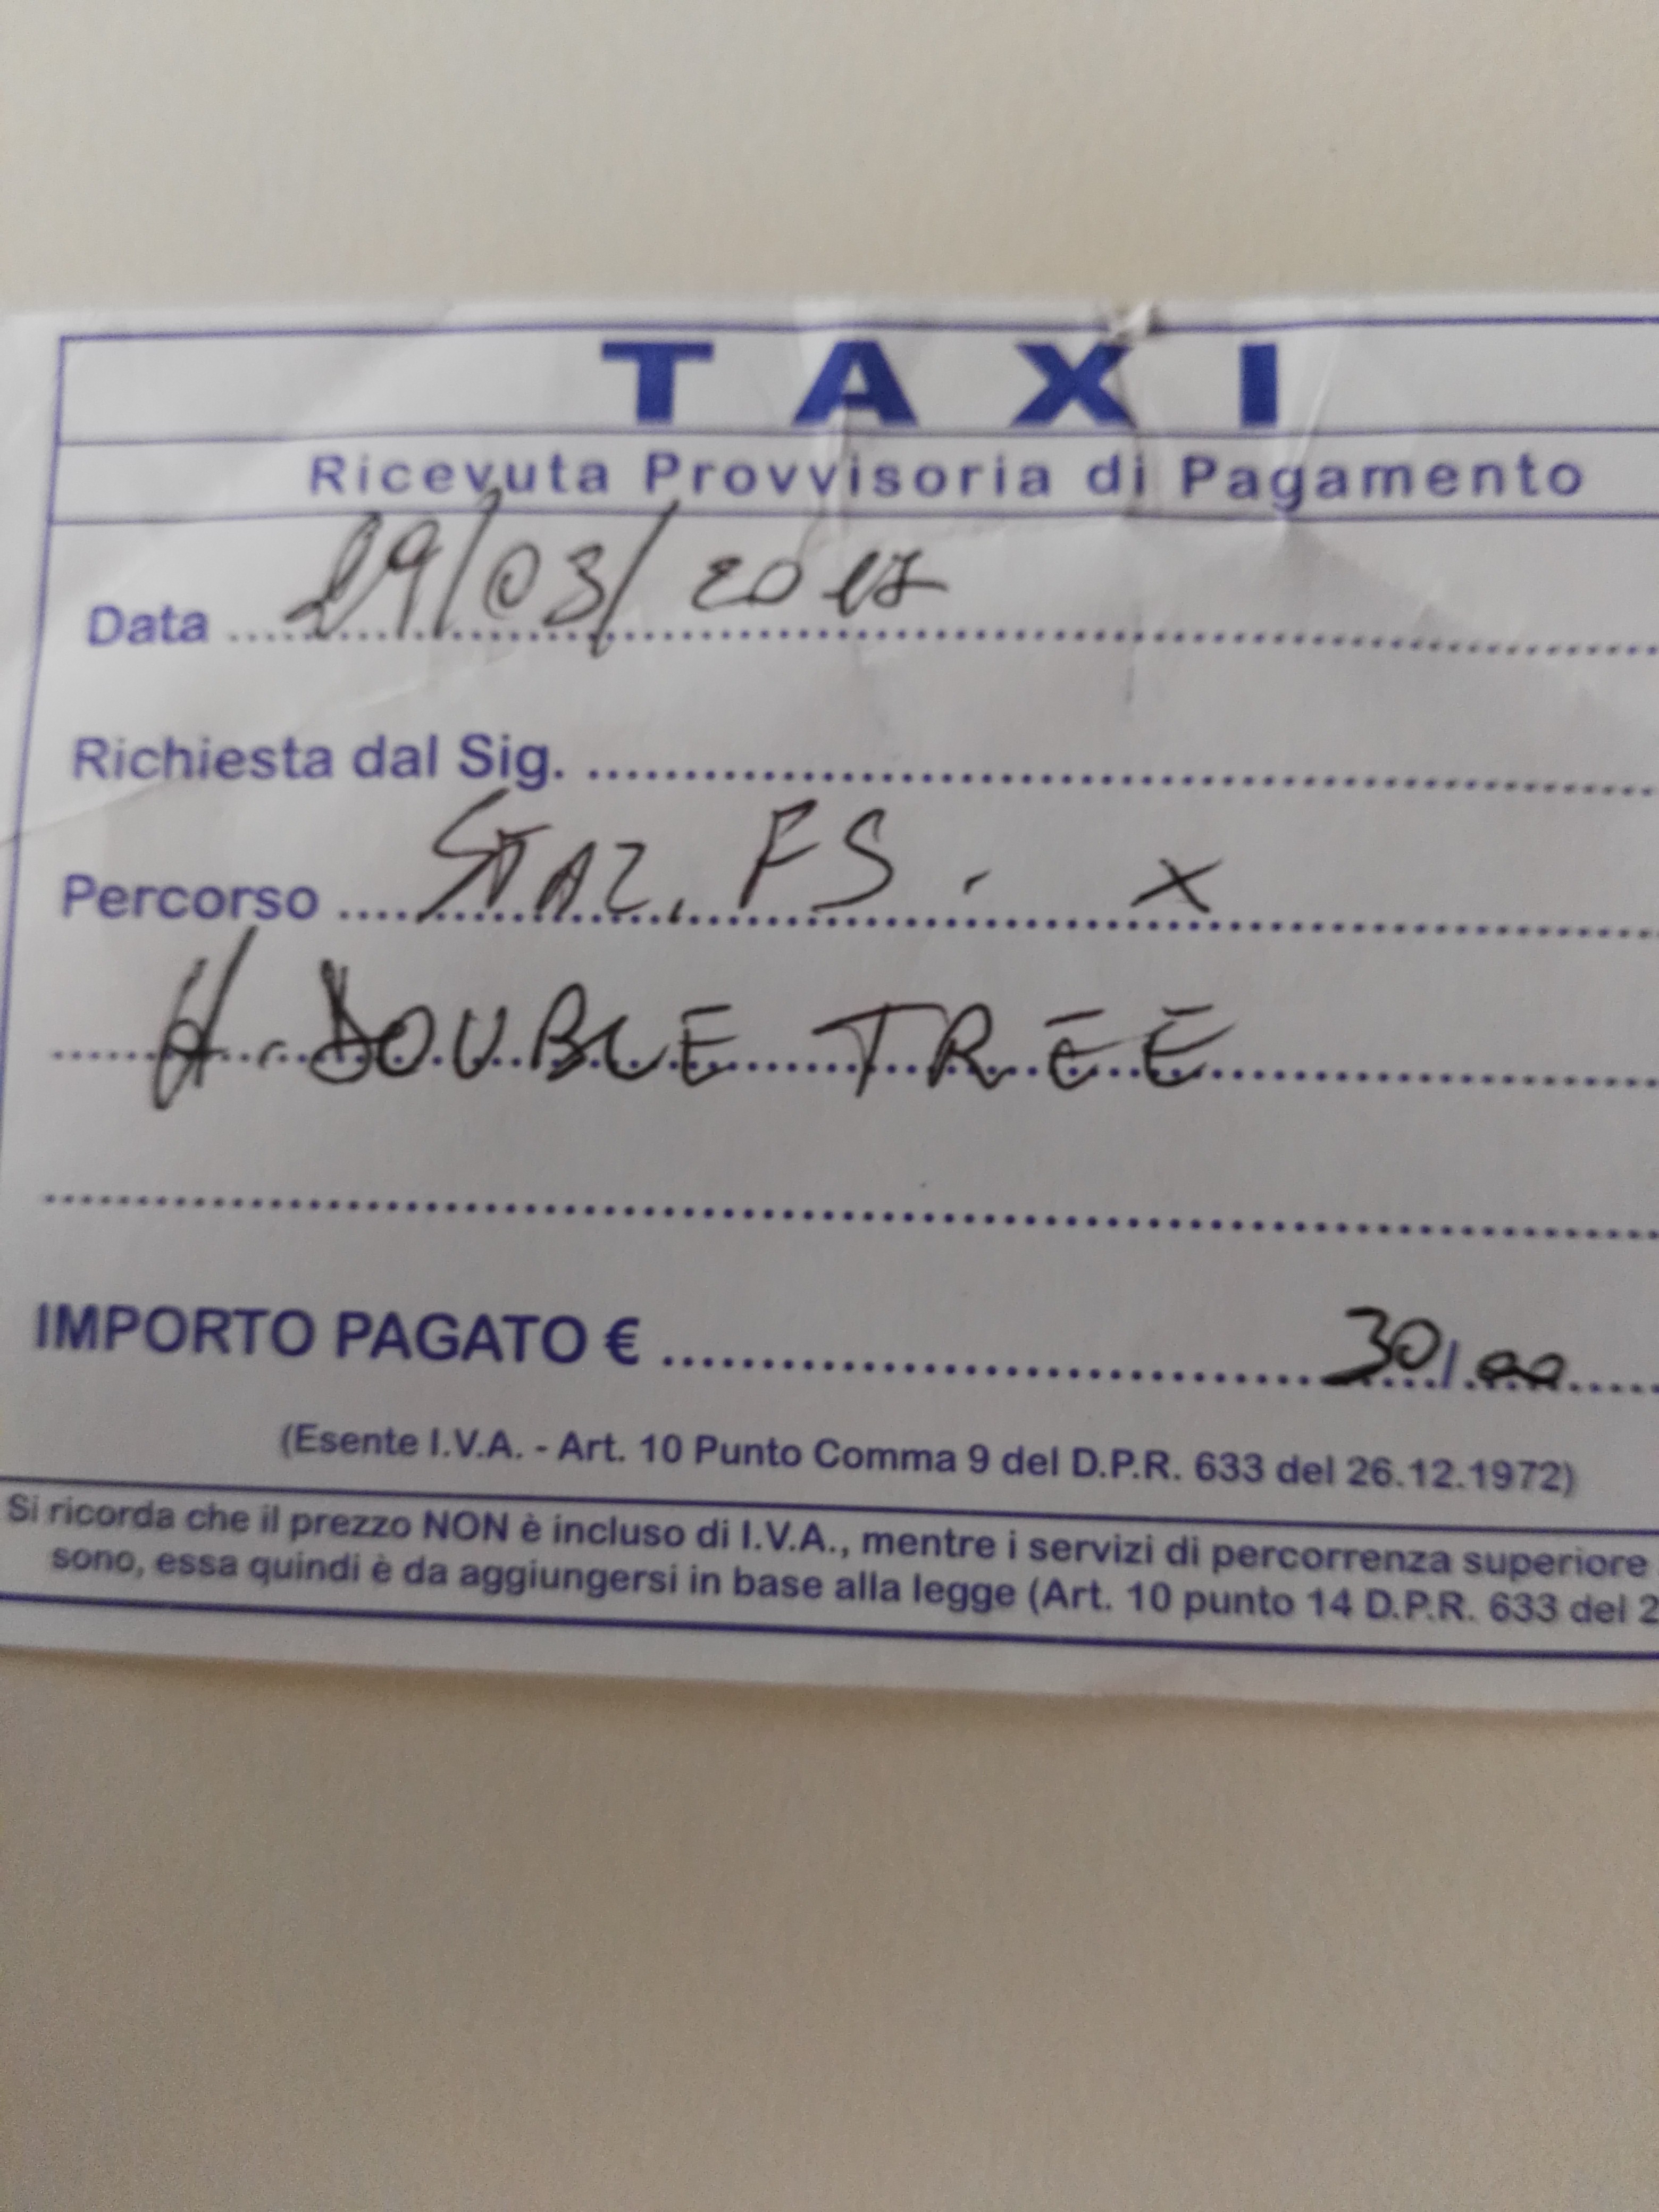 TAXI
Ricevuta Provvisoria di Pagamento
Data 29/03/2017
Richiesta dal Sig.
Percorso STAZ. FS. x
H. DOUBLE TREE
IMPORTO PAGATO € 30,00
(Esente I.V.A. - Art. 10 Punto Comma 9 del D.P.R. 633 del 26.12.1972)
Si ricorda che il prezzo NON è incluso di I.V.A., mentre i servizi di percorrenza superiore
sono, essa quindi è da aggiungersi in base alla legge (Art. 10 punto 14 D.P.R. 633 del 2